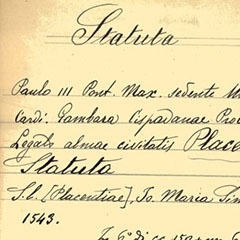 Statuta
Paulo III Pont. Max. sedente
Card. Gambara Cispadanae Prov
Legato almae civitatis Place
Statuta
S. l. [Placentiae], Jo. Maria Sim
1543.